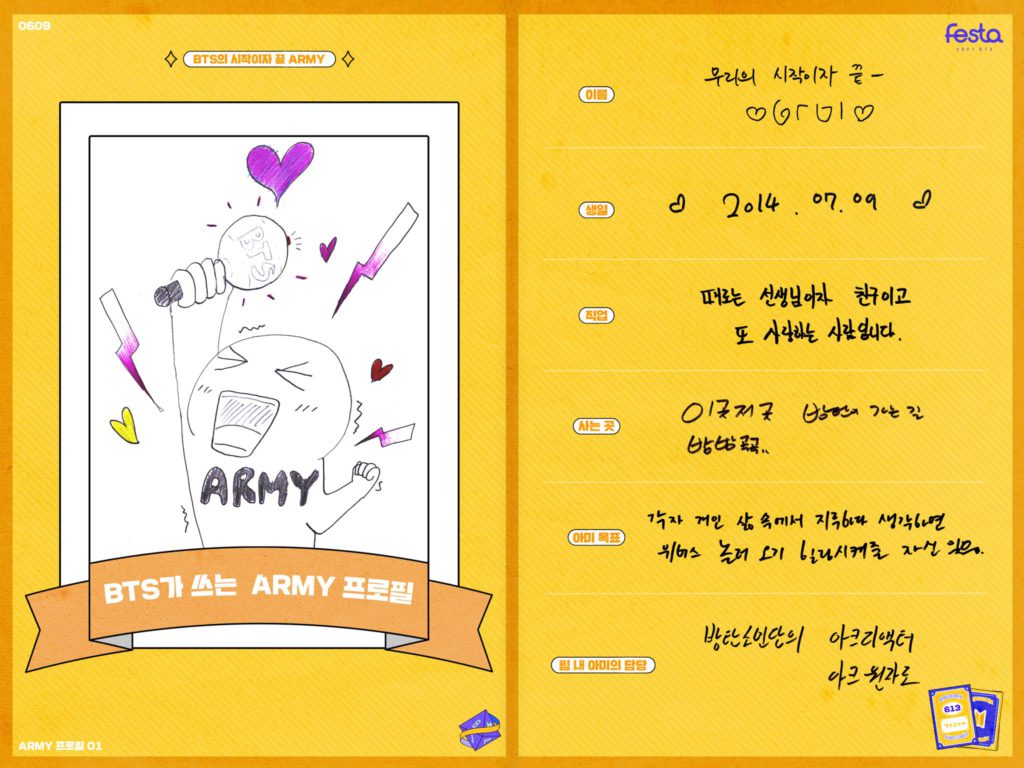 0609
BTS의 시작이자 끝 ARMY
BTS
ARMY
BTS가 쓰는 ARMY 프로필
ARMY 프로필 01
festa
2021 BTS
이름
우리의 시작이자 끝 -
♡아미♡
생일
2014. 07. 09
직업
때로는 선생님이자 친구이고
또 사랑하는 사람입니다.
사는 곳
이곳저곳 방탄이 가는 길
방방곡곡..
아미 목표
각자 개인 삶 속에서 지루하다 생각하면
위버스 놀러 오기 힐링시켜줄 자신 있음.
팀 내 아미의 담당
방탄소년단의 아크리액터
아크 원자로
613